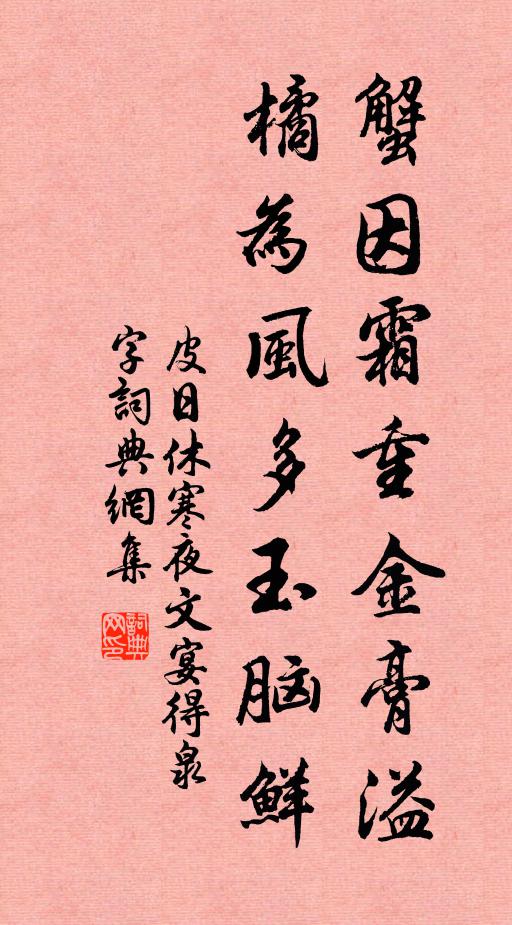 蟹因霜重金膏溢
橘為風多玉脑鮮
皮日休寒夜文宴得泉
字詞典網集
詞典網印